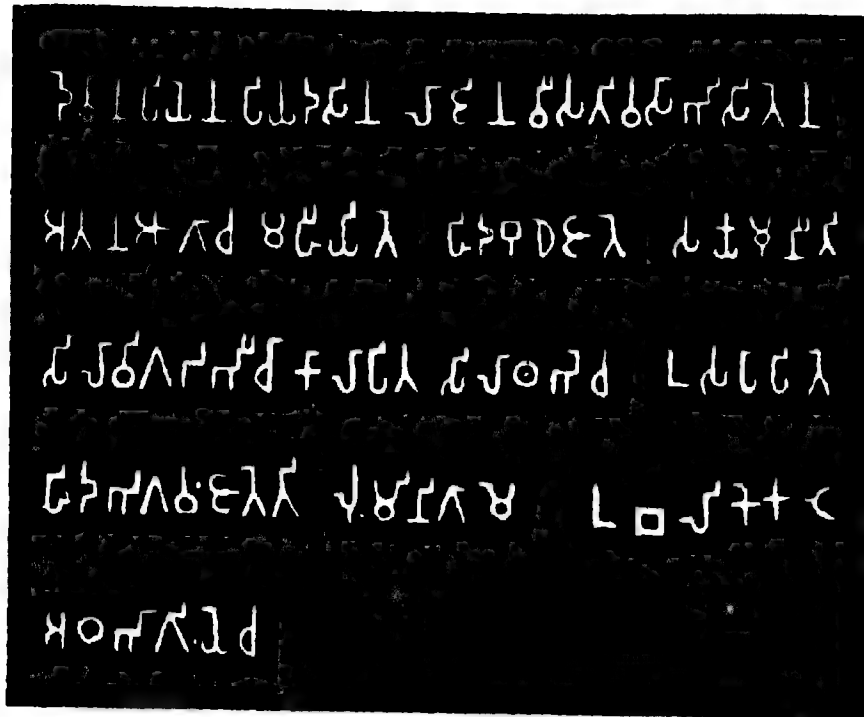 𑀤𑁂𑀯𑀸𑀦𑀧𑀺𑀬𑁂𑀦 𑀧𑀺𑀬𑀤𑀲𑀺𑀦 𑀮𑀸𑀚𑀺𑀦 𑀯𑀻𑀲𑀢𑀺𑀯𑀲𑀸𑀪𑀺𑀲𑀺𑀢𑁂𑀦
𑀅𑀢𑀦 𑀆𑀕𑀸𑀘 𑀫𑀳𑀻𑀬𑀺𑀢𑁂 𑀳𑀺𑀤 𑀩𑀼𑀥𑁂 𑀚𑀸𑀢𑁂 𑀲𑀓𑁆𑀬𑀫𑀼𑀦𑀺𑀢𑀺
𑀲𑀺𑀮𑀸𑀯𑀺𑀕𑀟𑀪𑀻𑀘𑀸 𑀓𑀸𑀮𑀸𑀧𑀺𑀢 𑀲𑀺𑀮𑀸𑀣𑀪𑁂 𑀘 𑀉𑀲𑀧𑀸𑀧𑀺𑀢𑁂
𑀳𑀺𑀤 𑀪𑀕𑀯𑀁 𑀚𑀸𑀢𑁂𑀢𑀺 𑀮𑀼𑀁𑀫𑀺𑀦𑀺𑀕𑀸𑀫𑁂 𑀉𑀩𑀮𑀺𑀓𑁂 𑀓𑀝𑁂
𑀅𑀞𑀪𑀸𑀕𑀺𑀬𑁂 𑀘